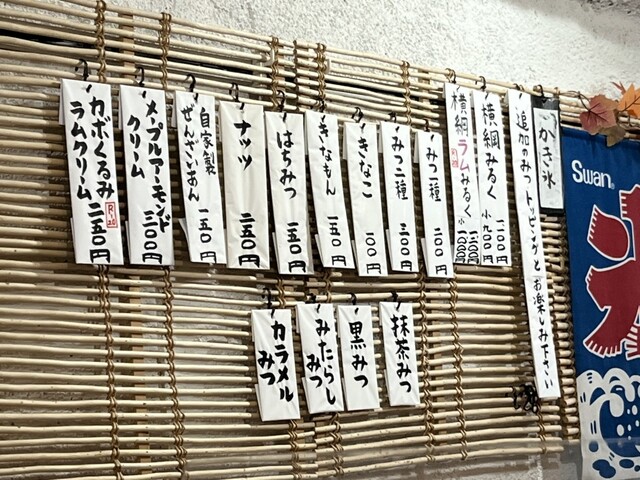 かき氷
追加のみつ トッピングとお楽しみ下さい
横綱みるく 小九〇〇円
横綱ラムみるく
R-20
みつ一種 二〇〇円
みつ二種 三〇〇円
きなこ 一〇〇円
きなもん 一五〇円
はちみつ 一五〇円
ナッツ 二五〇円
自家製
ぜんざいあん 一五〇円
メープルアーモンド
クリーム 三〇〇円
カボくるみ
ラムクリーム 二五〇円
R-20
抹茶みつ
黒みつ
みたらし
みつ
カラメル
みつ
Swan
氷
Swan